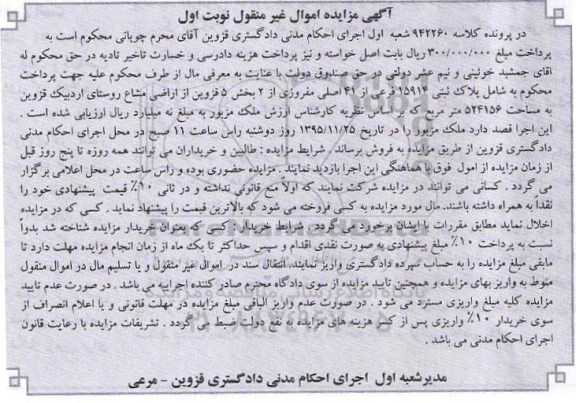 آگهی مزایده اموال غیر منقول نوبت اول
در پرونده کلاسه ۹۴۲۲۶۰ شعبه اول اجرای احکام مدنی دادگستری قزوین آقای محرم چوپانی محکوم است به
پرداخت مبلغ ۳۰۰/۰۰۰/۰۰۰ ریال بابت اصل خواسته و نیز پرداخت هزینه دادرسی و خسارت تاخیر تادیه در حق محکوم له
آقای جمشید خوئینی و نیم عشر دولتی در حق صندوق دولت با عنایت به معرفی مال از طرف محکوم علیه جهت پرداخت
محکوم به شامل پلاک ثبتی ۱۵۹۱۴ فرعی از ۴۱ اصلی مفروزی از ۲ بخش ۵ قزوین از اراضی مشاع روستای اردبیک قزوین
به مساحت ۵۲۴۱۵۶ متر مربع که بر اساس نظریه کارشناس ارزش ملک مزبور به مبلغ نه میلیارد ریال ارزیابی شده است .
این اجرا قصد دارد ملک مزبور را در تاریخ ۱۳۹۵/۱۱/۲۵ روز دوشنبه راس ساعت ۱۱ صبح در محل اجرای احکام مدنی
دادگستری قزوین از طریق مزایده به فروش برساند. شرایط مزایده : طالبین و خریداران می توانند همه روزه تا پنج روز قبل
از زمان مزایده از امول فوق با هماهنگی این اجرا بازدید نمایند. مزایده حضوری بوده و راس ساعت در محل اعلامی برگزار
می گردد . کسانی می توانند در مزایده شرکت نمایند که اولاً منع قانونی نداشته و در ثانی ۱۰٪ قیمت پیشنهادی خود را
نقداً به همراه داشته باشند. مال مورد مزایده به کسی فروخته می شود که بالاترین قیمت را پیشنهاد نماید . کسی که در مزایده
اخلال نماید مطابق مقررات با ایشان برخورد می گردد . شرایط خریدار: کسی که بعنوان خریدار مزایده شناخته شد بدواً
نسبت به پرداخت ۱۰٪ مبلغ پیشنهادی به صورت نقدی اقدام و سپس حداکثر تا یک ماه از زمان انجام مزایده مهلت دارد تا
مابقی مبلغ مزایده را به حساب سپرده دادگستری واریز نمایند. انتقال سند در اموال غیر منقول و یا تسلیم مال در اموال منقول
منوط به واریز بهای مزایده و همچنین تایید مزایده از سوی دادگاه محترم صادر کننده اجراییه می باشد . در صورت عدم تایید
مزایده کلیه مبلغ واریزی مسترد می شود . در صورت عدم واریز الباقی مبلغ مزایده در مهلت قانونی و یا اعلام انصراف از
سوی خریدار ۱۰٪ واریزی پس از کسر هزینه های مزایده به نفع دولت ضبط می گردد . تشریفات مزایده با رعایت قانون
اجرای احکام مدنی می باشد .
مدیرشعبه اول اجرای احکام مدنی دادگستری قزوین - مرعی